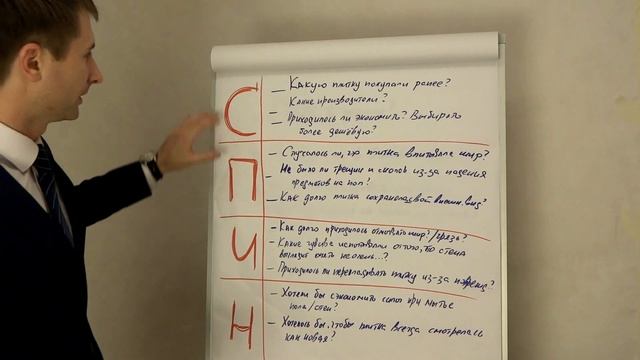 С
— Какую плитку покупали ранее?
Какие производители?
— Приходилось ли экономить? Выбирать
более дешёвую?
П
— Случалось ли, что плитка впитывала жир?
— Не было ли трещин и сколов из-за падения
предметов на пол?
— Как долго плитка сохраняла свой внешн. вид?
И
— Как долго приходилось отмывать жир?/грязь?
— Какие чувства испытывали от того, что стена
выглядит опять не очень...?
— Приходилось ли перекладывать плитку из-за
Н
— Хотели бы сэкономить силы при мытье
пола/стен?
— Хотелось бы, чтобы плитка всегда смотрелась
как новая?